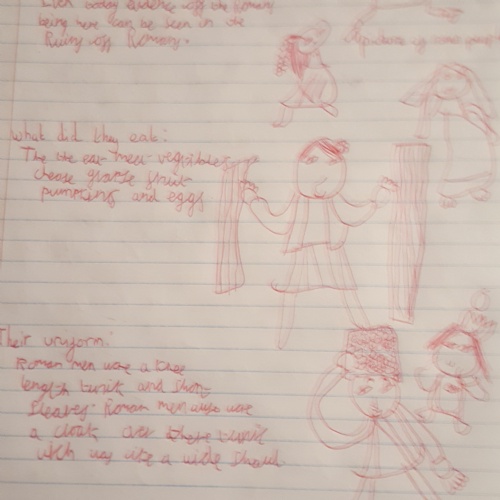 Even today evidence off the Romans
being here can be seen in the
Ruins off Romans.
What did they eat:
The the eat meat vegitibles
cheese fruit
pumpkins and eggs
Their uniform:
Roman men wore a knee
length tunic and short
Sleaves. Roman men also wore
a cloak over there tunic
wich was like a wide shawl